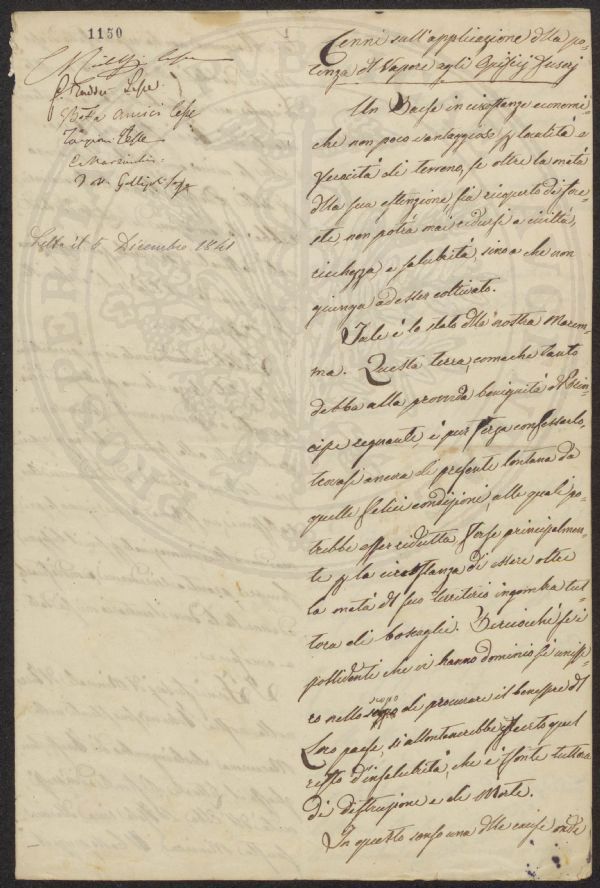 1150
Beta Amici Cesse
Letto il 5 Dicembre 1841
Cenni sull'applicazione della po-
tenza del Vapore agli Opificj Fusorj
Un Paese in circostanze economi-
che non poco vantaggiose p località e
feracità di terreno, se oltre la metà
della sua estenzione sia ricoperto di fore-
ste non potrà mai ridursi a civiltà,
ricchezza, e salubrità, sino a che non
giunga ad esser coltivato.
Tale è lo stato della nostra Marem-
ma. Questa terra, comechè tanto
debba alla provvida benignità del Prin-
cipe regnante, è pur forza confessarlo,
trovasi ancora di presente lontana da
quelle felici condizioni, alle quali po-
trebbe esser ridutta, forse principalmen-
te p la circostanza di essere oltre
la metà del suo territorio ingombra tut-
tora di boscaglie. Perciocchè se i
possidenti che vi hanno dominio si unisse-
ro nello scopo di procurare il benessere del
Loro paese, si allontanerebbe p certo quel
resto d'insalubrità, che è fonte tuttora
di distruzione e di Morte.
In questo senso una delle cause onde